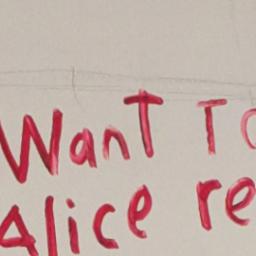 Want To
Alice re